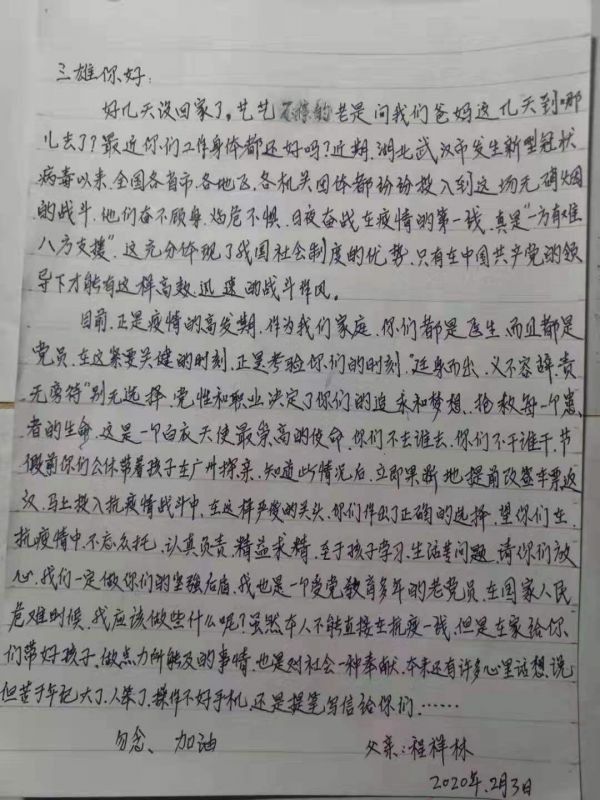 三雄你好：
好几天没回家了。艺艺不停的老是问我们爸妈这几天到哪
儿去了？最近你们工作身体都还好吗？近期，湖北武汉市发生新型冠状
病毒以来，全国各省市、各地区、各机关团体都纷纷投入到这场无硝烟
的战斗，他们奋不顾身，临危不惧，日夜奋战在疫情的第一线，真是"一方有难
八方支援"，这充分体现了我国社会制度的优势，只有在中国共产党的领
导下才能有这样高效、迅速的战斗作风。
目前，正是疫情的高发期，作为我们家庭，你们都是医生，而且都是
党员，在这紧要关键的时刻，正是考验你们的时刻，"挺身而出、义不容辞、责
无旁待"别无选择，党性和职业决定了你们的追求和梦想，抢救每一个患
者的生命，这是一个白衣天使最崇高的使命，你们不去谁去，你们不干谁干，节
假前你们公休带着孩子在广州探亲，知道此情况后，立即果断地提前改签车票返
汉，马上投入抗疫情战斗中，在这样严峻的关头，你们作出了正确的选择，望你们在
抗疫情中，不忘众托，认真负责，精益求精，至于孩子学习、生活等问题，请你们放
心，我们一定做你们的坚强后盾，我也是一个受党教育多年的老党员，在国家人民
危难时候，我应该做些什么呢？虽然本人不能直接在抗疫一线，但是在家给你
们带好孩子，做点力所能及的事情，也是对社会一种奉献，本来还有许多心里话想说
但苦于年纪大了，人笨了，操作不好手机，还是提笔写信给你们，……
勿念、加油
父亲：程祥林
2020年2月3日